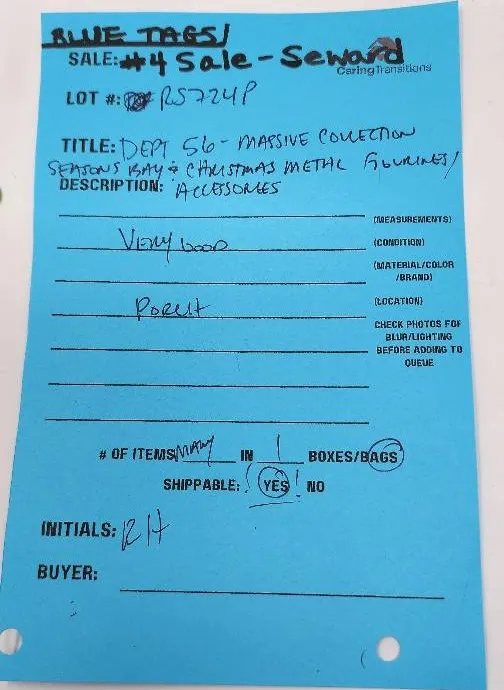 BLUE TAGS/
SALE: #4 Sale - Seward
CaringTransitions
LOT #: RS724P
TITLE: DEPT 56 - MASSIVE COLLECTION
SEASONS BAY & CHRISTMAS METAL FIGURINES/
DESCRIPTION: ACCESSORIES
(MEASUREMENTS)
VERY GOOD (CONDITION)
(MATERIAL/COLOR
/BRAND)
PORCH (LOCATION)
CHECK PHOTOS FOR
BLUR/LIGHTING
BEFORE ADDING TO
QUEUE
# OF ITEMS MANY IN 1 BOXES/BAGS
SHIPPABLE: YES ! NO
INITIALS: RH
BUYER: